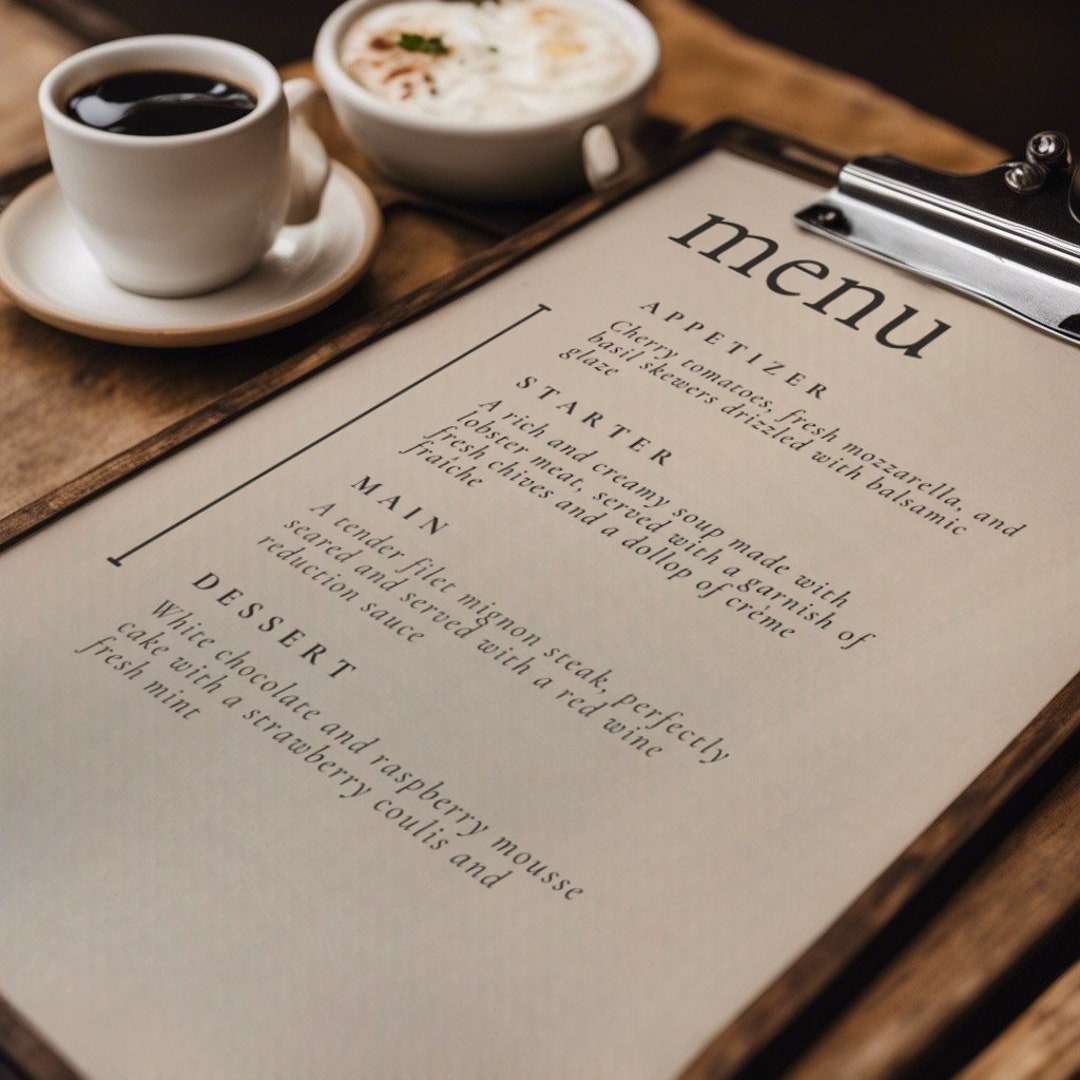 menu
APPETIZER
Cherry tomatoes, fresh mozzarella, and
basil skewers drizzled with balsamic
glaze
STARTER
A rich and creamy soup made with
lobster meat, served with a garnish of
fresh chives and a dollop of crème
fraîche
MAIN
A tender filet mignon steak, perfectly
seared and served with a red wine
reduction sauce
DESSERT
White chocolate and raspberry mousse
cake with a strawberry coulis and
fresh mint